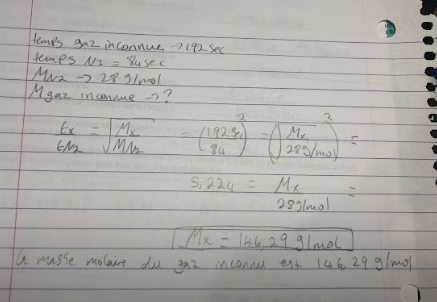 temps gaz inconnue → 192 sec
temps N2 = 84 sec
MN2 → 28 g/mol
M gaz inconnue → ?
tx/tN2 = √(Mx/MN2) = (192 sec/84)² = (√(Mx/28g/mol))² =
5,224 = Mx/28g/mol =
Mx = 146,29 g/mol
La masse molaire du gaz inconnu est 146,29 g/mol